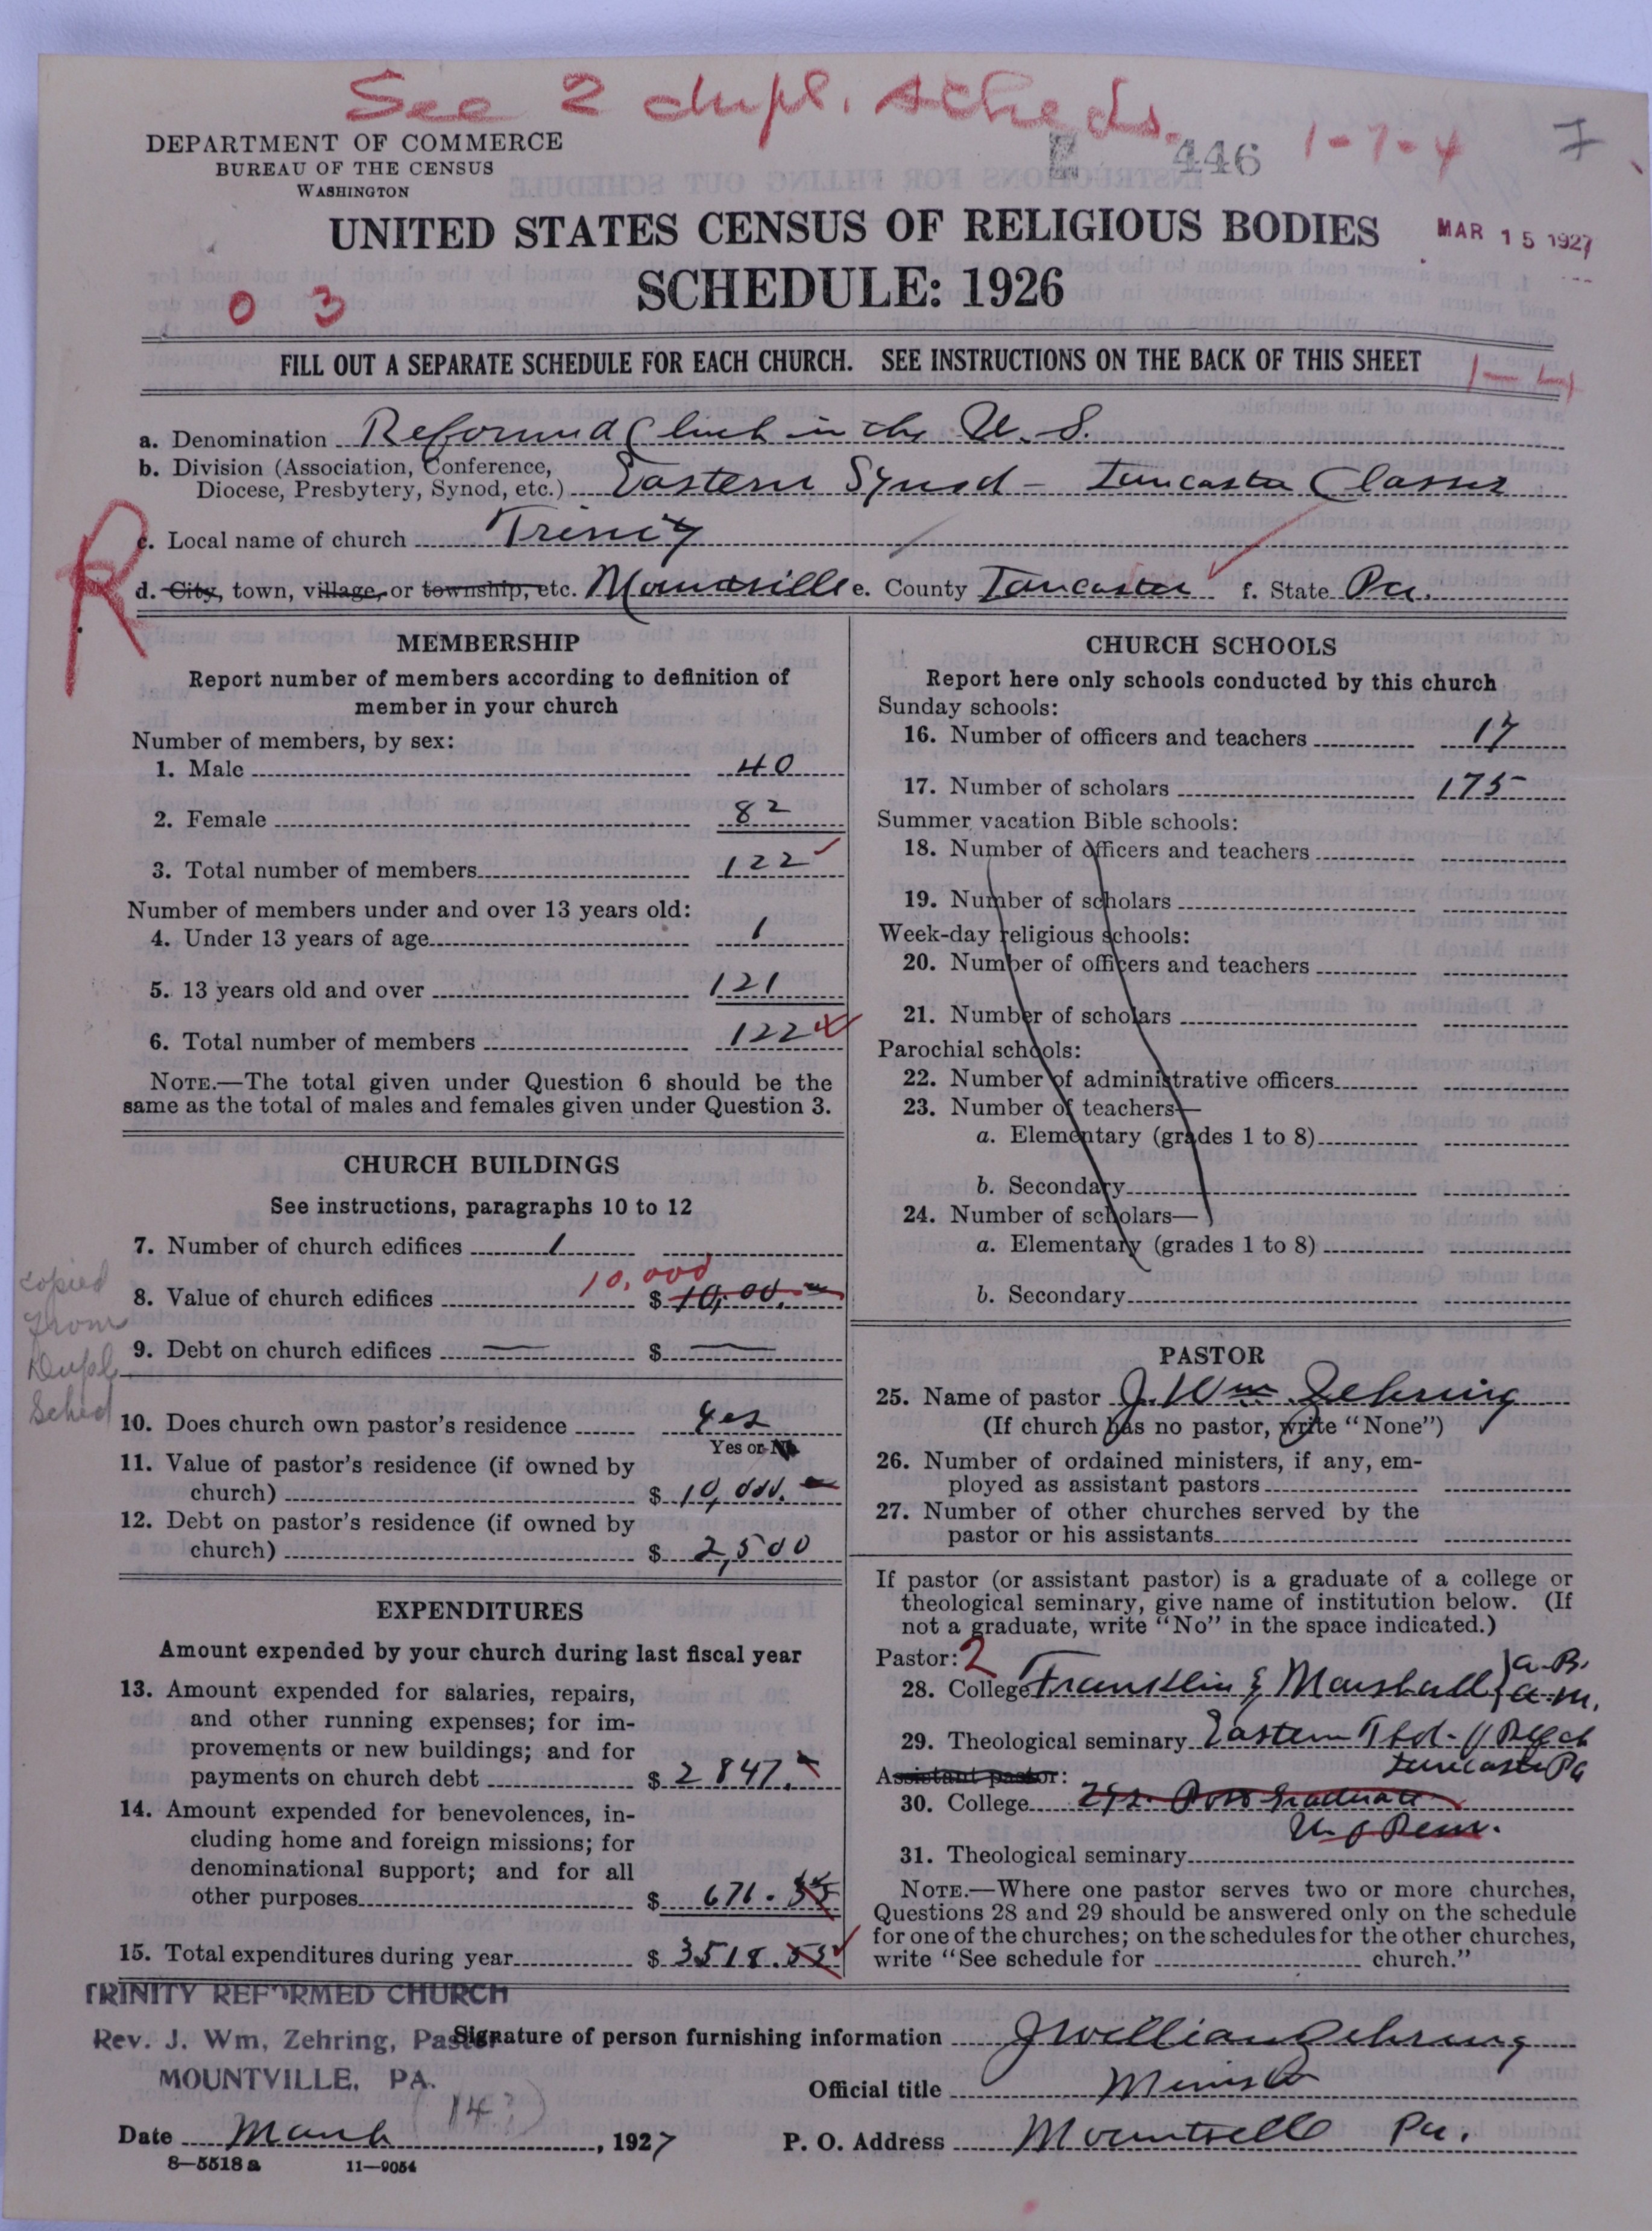 See 2 dupl. scheds.
DEPARTMENT OF COMMERCE
BUREAU OF THE CENSUS
WASHINGTON
E 446 1-7-4 7
UNITED STATES CENSUS OF RELIGIOUS BODIES
MAR 15 1927
SCHEDULE: 1926
0 3
FILL OUT A SEPARATE SCHEDULE FOR EACH CHURCH. SEE INSTRUCTIONS ON THE BACK OF THIS SHEET
1-4
a. Denomination Reformed Church in the U. S.
b. Division (Association, Conference,
Diocese, Presbytery, Synod, etc.) Eastern Synod - Lancaster Classis
R
c. Local name of church Trinity
d. City, town, village, or township, etc. Mountville e. County Lancaster f. State Pa.
MEMBERSHIP
Report number of members according to definition of
member in your church
Number of members, by sex:
1. Male 40
2. Female 82
3. Total number of members 122
Number of members under and over 13 years old:
4. Under 13 years of age 1
5. 13 years old and over 121
6. Total number of members 122
NOTE.—The total given under Question 6 should be the
same as the total of males and females given under Question 3.
CHURCH BUILDINGS
See instructions, paragraphs 10 to 12
7. Number of church edifices 1
10,000
8. Value of church edifices $ 10,00.
copied
from
Dupl
Sched
9. Debt on church edifices — $ —
10. Does church own pastor's residence Yes
Yes or No
11. Value of pastor's residence (if owned by
church) $ 10,000.
12. Debt on pastor's residence (if owned by
church) $ 2,500
EXPENDITURES
Amount expended by your church during last fiscal year
13. Amount expended for salaries, repairs,
and other running expenses; for im-
provements or new buildings; and for
payments on church debt $ 2847.
14. Amount expended for benevolences, in-
cluding home and foreign missions; for
denominational support; and for all
other purposes $ 671.
15. Total expenditures during year $ 3518.53
CHURCH SCHOOLS
Report here only schools conducted by this church
Sunday schools:
16. Number of officers and teachers 17
17. Number of scholars 175
Summer vacation Bible schools:
18. Number of officers and teachers
19. Number of scholars
Week-day religious schools:
20. Number of officers and teachers
21. Number of scholars
Parochial schools:
22. Number of administrative officers
23. Number of teachers—
a. Elementary (grades 1 to 8)
b. Secondary
24. Number of scholars—
a. Elementary (grades 1 to 8)
b. Secondary
PASTOR
25. Name of pastor J. Wm Zehring
(If church has no pastor, write "None")
26. Number of ordained ministers, if any, em-
ployed as assistant pastors
27. Number of other churches served by the
pastor or his assistants
If pastor (or assistant pastor) is a graduate of a college or
theological seminary, give name of institution below. (If
not a graduate, write "No" in the space indicated.)
Pastor: 2
28. College Franklin & Marshall } A.B. A.M.
29. Theological seminary Eastern
Lancaster Pa
Assistant pastor:
30. College 2 yr. Post Graduate
U. of Penn.
31. Theological seminary
NOTE.—Where one pastor serves two or more churches,
Questions 28 and 29 should be answered only on the schedule
for one of the churches; on the schedules for the other churches,
write "See schedule for church."
TRINITY REFORMED CHURCH
Rev. J. Wm, Zehring, Pastor
MOUNTVILLE, PA.
Signature of person furnishing information J William Zehring
Official title Minister
Date March 14, 1927
P. O. Address Mountville Pa.
8—5518a 11—9054